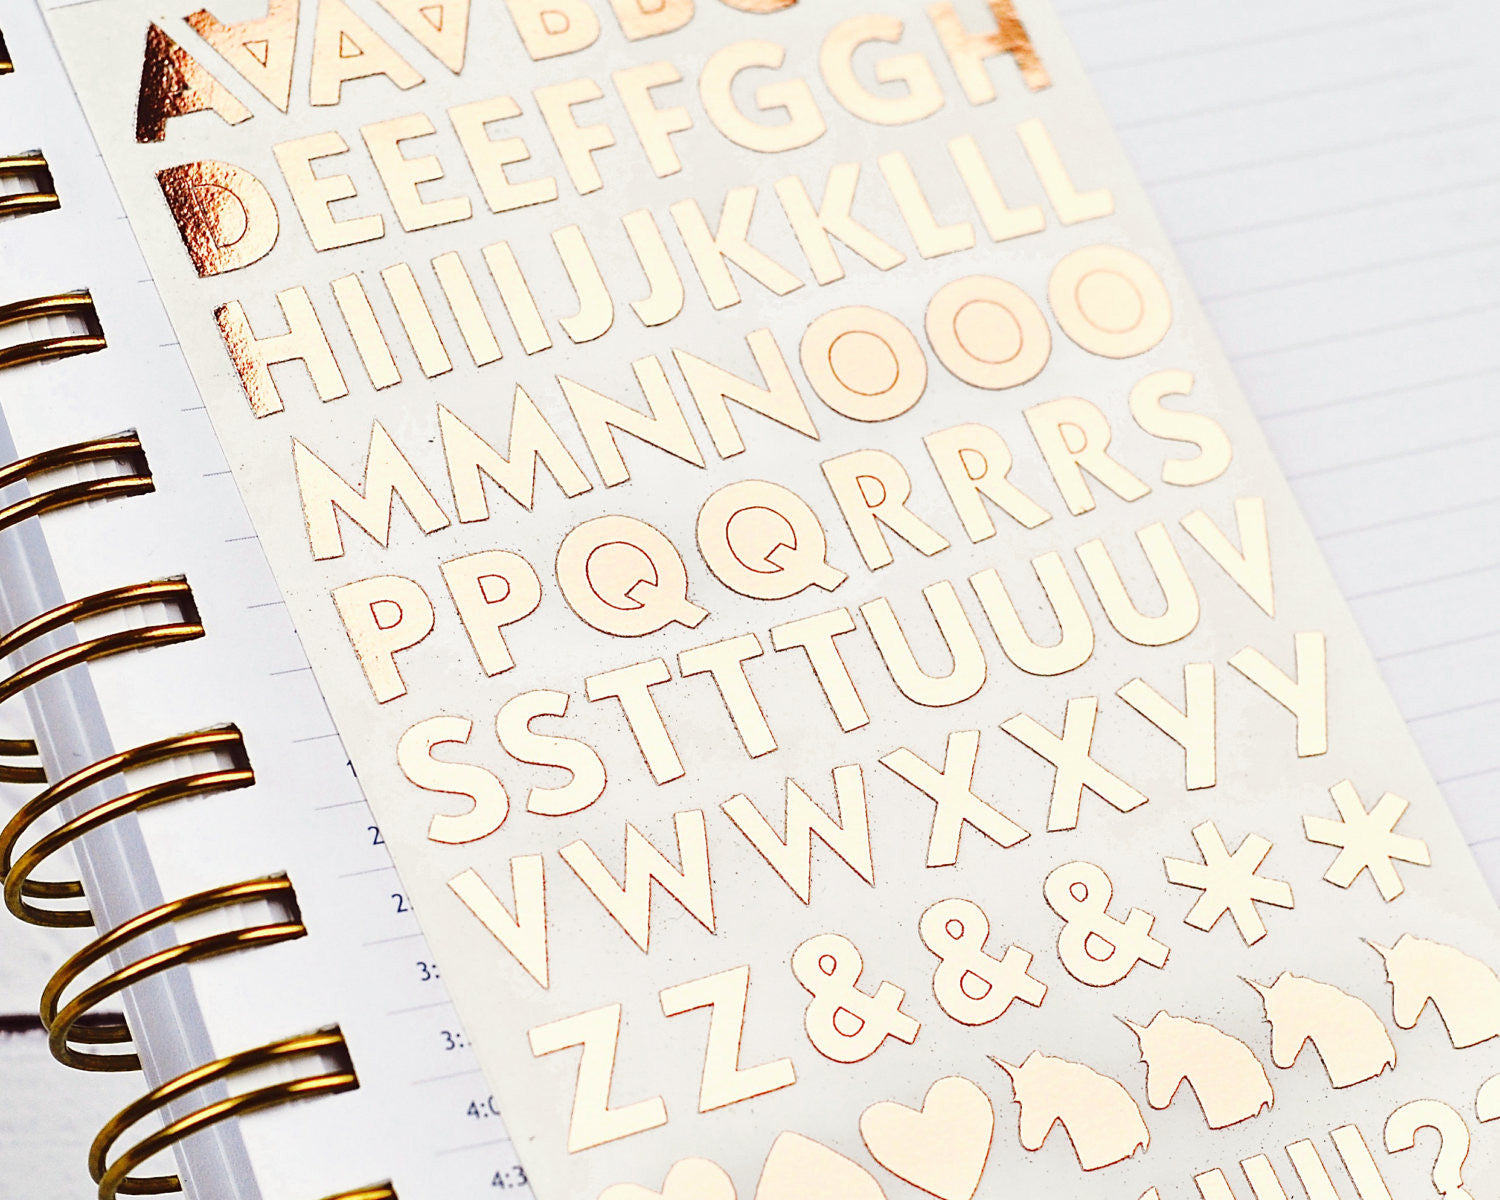 AAAABB
DEEEFFGGH
HIIIIJJKKLLL
MMNNOOO
PPQQRRRS
SSTTTUUUV
VWWXXYY
ZZ&&&**
?
2
2:
3:
3:
4:0
4:3